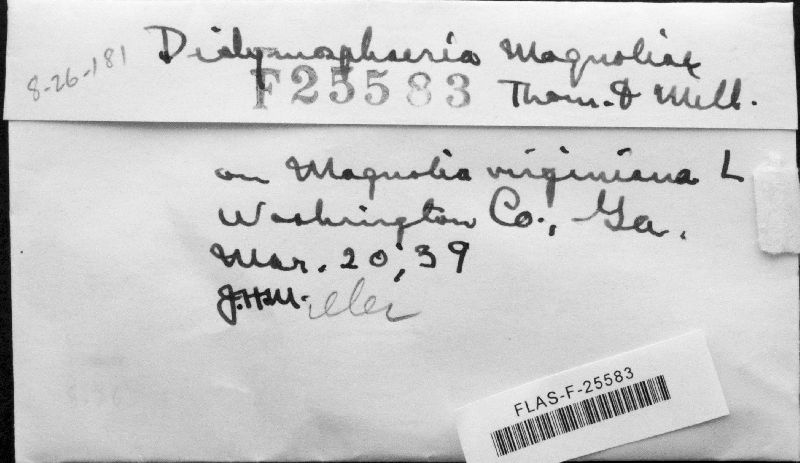 8-26-181 Didymosphaeria Magnoliae
F25583 Thom. & Mill.
on Magnolia virginiana L
Washington Co., Ga.
Mar. 20, 39
J.H.M.iller
FLAS-F-25583